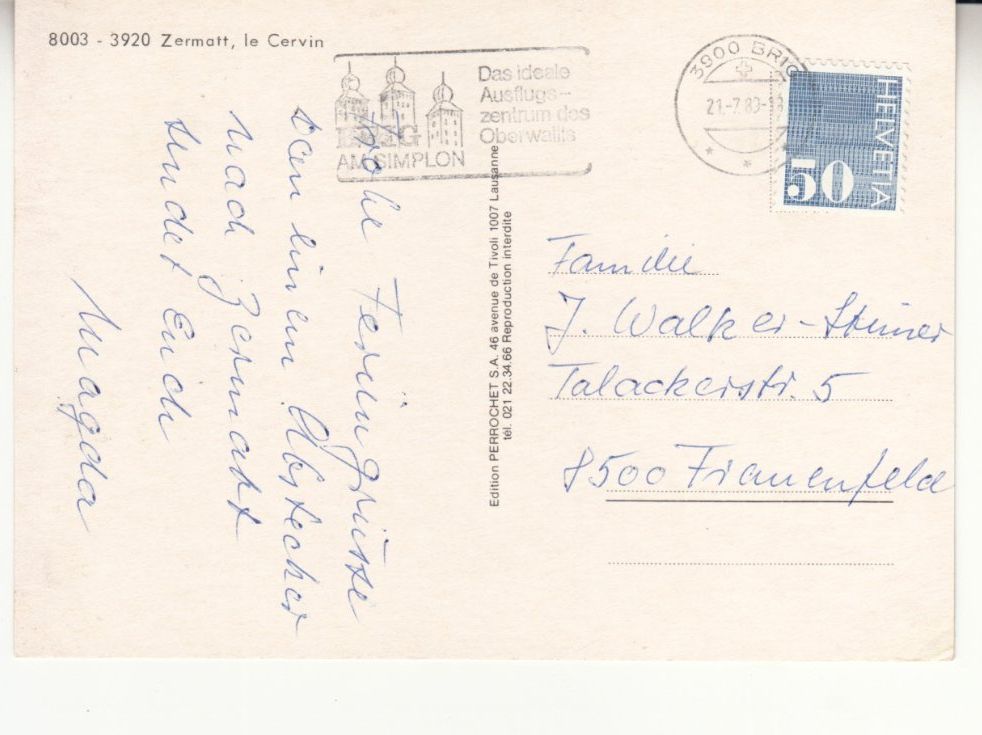 8003 - 3920 Zermatt, le Cervin
BRIG
AM SIMPLON
Das ideale
Ausflugs-
zentrum des
Oberwallis
3900 BRIG
21.-7.89-
HELVETIA
50
Frohe Feriengrüsse
von einem Abstecher
nach Zermatt
sendet Euch
Magda
Edition PERROCHET S.A. 46 avenue de Tivoli 1007 Lausanne
tél. 021 22.34.66 Reproduction interdite
Familie
J. Walker-Steiner
Talackerstr. 5
8500 Frauenfeld